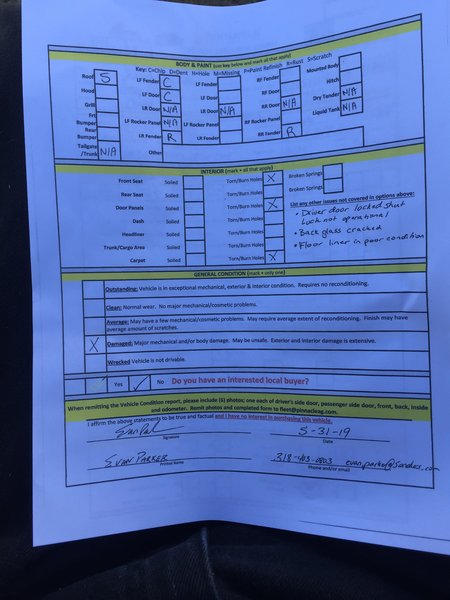 BODY & PAINT (use key below and mark all that apply)
Key: C=Chip D=Dent H=Hole M=Missing P=Paint Refinish R=Rust S=Scratch
Roof S LF Fender C LF Fender RF Fender Mounted Body
Hood LF Door C LF Door RF Door Hitch
Grill LR Door N/A LR Door N/A RR Door N/A Dry Tender N/A
Frt Bumper LF Rocker Panel N/A LF Rocker Panel RF Rocker Panel Liquid Tank N/A
Rear Bumper LR Fender R LR Fender RR Fender R
Tailgate /Trunk N/A Other
INTERIOR (mark • all that apply)
Front Seat Soiled Torn/Burn Holes X Broken Springs
Rear Seat Soiled Torn/Burn Holes Broken Springs
Door Panels Soiled Torn/Burn Holes X List any other issues not covered in options above:
Dash Soiled Torn/Burn Holes • Driver door locked shut
Lock not operational
Headliner Soiled Torn/Burn Holes • Back glass cracked
Trunk/Cargo Area Soiled Torn/Burn Holes • Floor liner in poor condition
Carpet Soiled Torn/Burn Holes X
GENERAL CONDITION (mark • only one)
Outstanding: Vehicle is in exceptional mechanical, exterior & interior condition. Requires no reconditioning.
Clean: Normal wear. No major mechanical/cosmetic problems.
Average: May have a few mechanical/cosmetic problems. May require average extent of reconditioning. Finish may have
average amount of scratches.
X Damaged: Major mechanical and/or body damage. May be unsafe. Exterior and interior damage is extensive.
Wrecked Vehicle is not drivable.
Yes ✓ No Do you have an interested local buyer?
When remitting the Vehicle Condition report, please include (5) photos; one each of driver's side door, passenger side door, front, back, inside
and odometer. Remit photos and completed form to fleet@pinnacleag.com.
I affirm the above statements to be true and factual and I have no interest in purchasing this vehicle.
5-31-19
Signature Date
EVAN PARKER 318-403-0803
Printed Name Phone and/or email